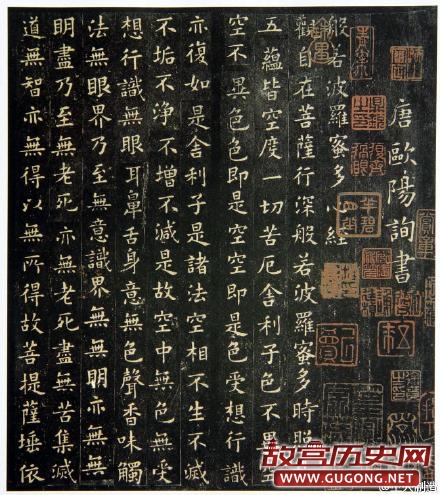 唐歐陽詢書
般若波羅蜜多心經
觀自在菩薩行深般若波羅蜜多時照
五蘊皆空度一切苦厄舍利子色不異空
空不異色色即是空空即是色受想行識
亦復如是舍利子是諸法空相不生不滅
不垢不淨不增不減是故空中無色無受
想行識無眼耳鼻舌身意無色聲香味觸
法無眼界乃至無意識界無無明亦無無
明盡乃至無老死亦無老死盡無苦集滅
道無智亦無得以無所得故菩提薩埵依
故宫历史网
www.GUGONG.net